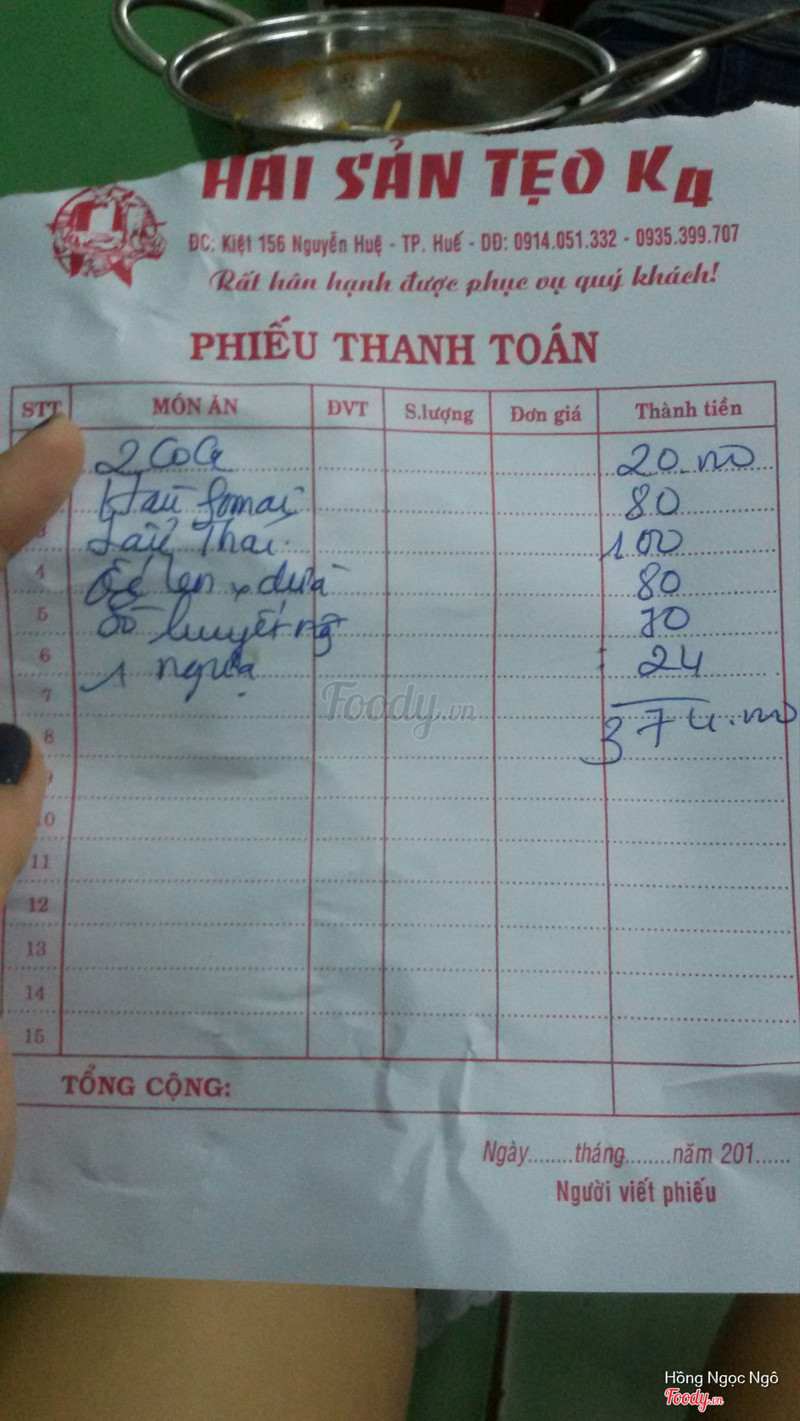 HẢI SẢN TẸO K4
ĐC: Kiệt 156 Nguyễn Huệ - TP. Huế - DĐ: 0914.051.332 - 0935.399.707
Rất hân hạnh được phục vụ quý khách!
PHIẾU THANH TOÁN
STT MÓN ĂN ĐVT S.lượng Đơn giá Thành tiền
2 CoCa 20.000
Hàu fomai 80
3 Lẩu Thái 100
4 Ốc len x dừa 80
5 Sò huyết 70
6 1 ngựa 24
7 374.000
8
9
10
11
12
13
14
15
TỔNG CỘNG:
Ngày........tháng........năm 201......
Người viết phiếu
Foody.vn
Hồng Ngọc Ngô
Foody.vn